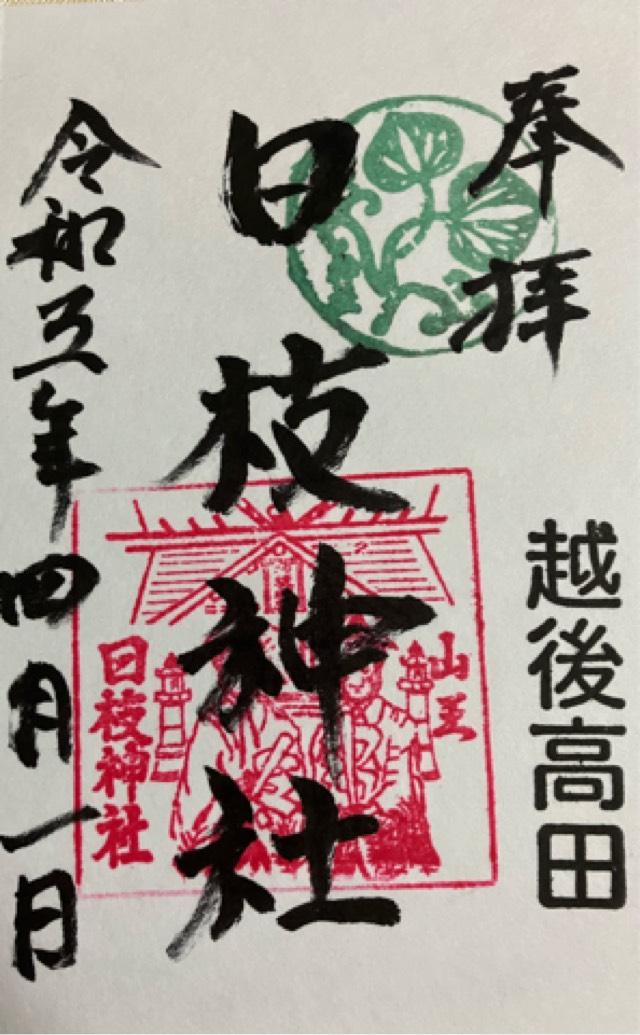 奉拝
越後高田
日枝神社
山王
日枝神社
令和五年四月一日